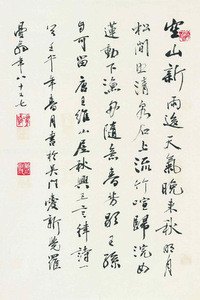 空山新雨後天氣晚来秋明月
松間照清泉石上流竹喧歸浣女
蓮動下漁舟隨意春芳歇王孫
自可留唐王維山居秋興五言律詩一
年春月書於吳門愛新覺羅
年八十又七